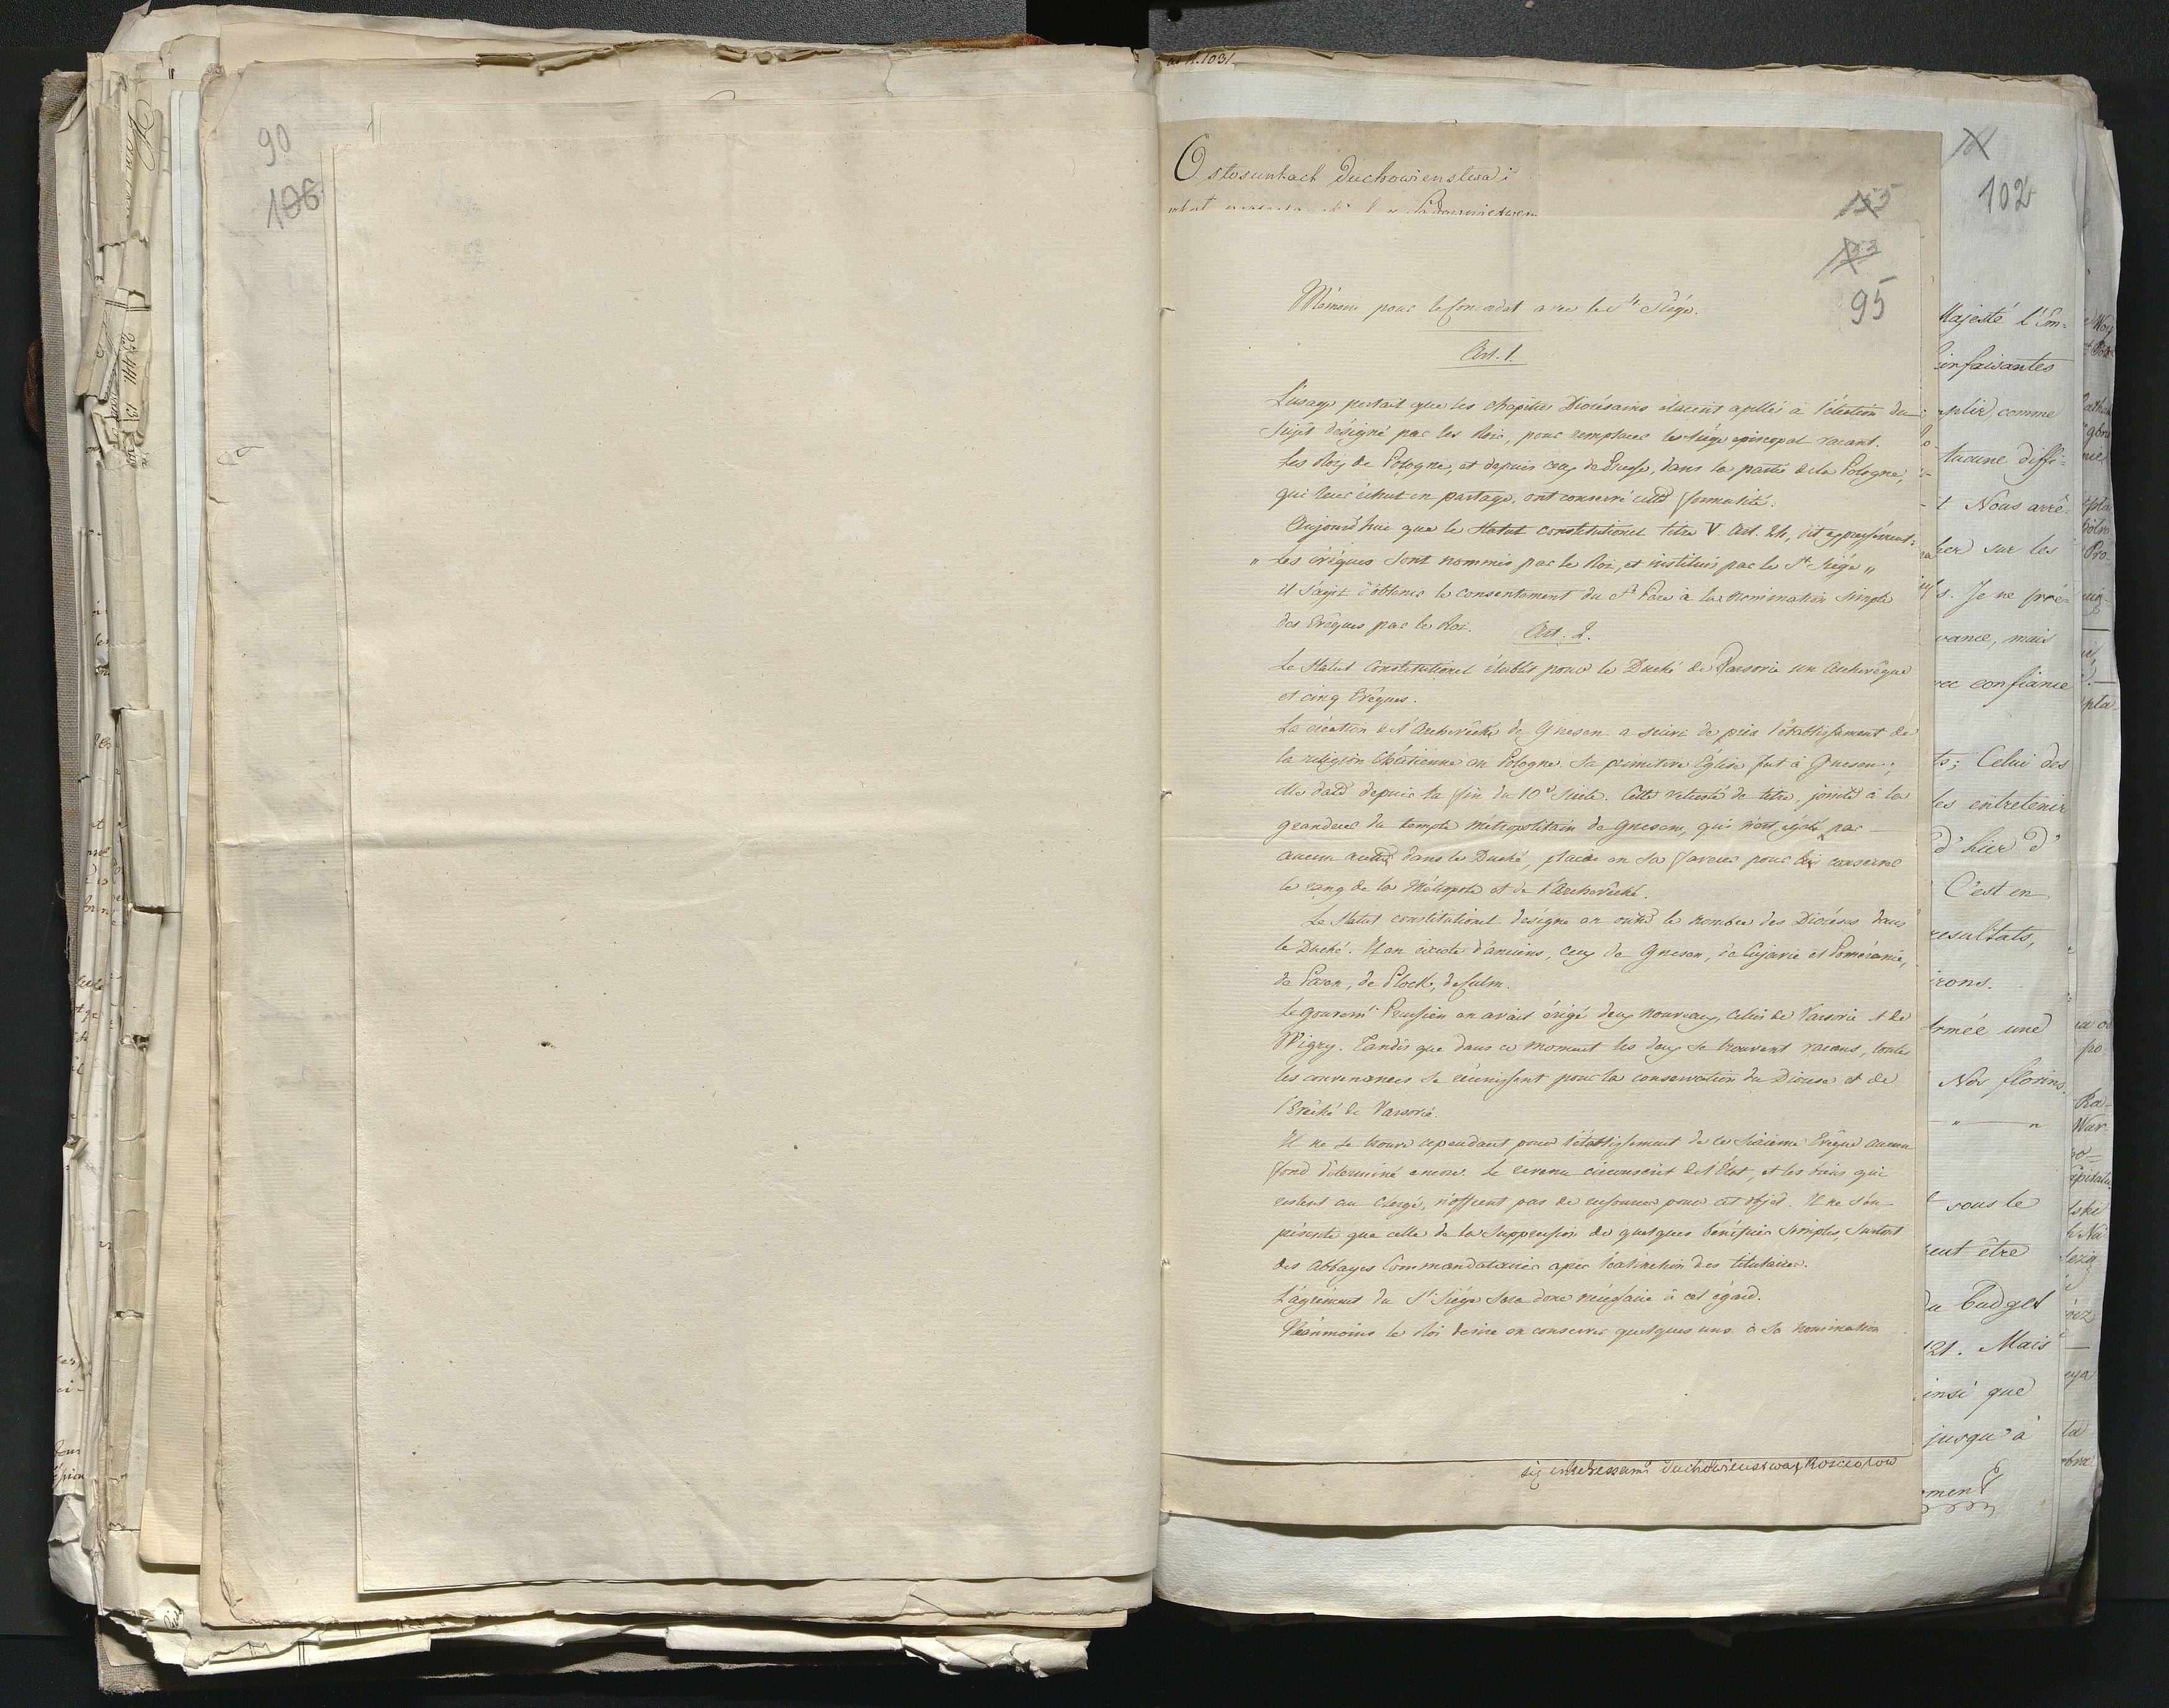 90
106
ad N. 1031
O stosunkach duchowienstwa i
133
133
95
102
Mémoire pour le Concordat avec le St Siége.
Art. 1.
L'usage portait que les chapitres Diocésains étaient apellés à l'élection du
Sujet désigné par les Rois, pour remplacer le siége episcopal vacant.
Les Rois de Pologne, et depuis ceux de Prusse, dans la partie de la Pologne,
qui leur échut en partage, ont conservé cette formalité.
Aujourd'hui que le Statut constitutionel titre V. Art. 24, dit expressément:
" Les évêques sont nommés par le Roi, et institués par le St Siége "
il s'agit d'obtenir le consentement du St Pere à la nomination simple
des Evêques par le Roi.
Art. 2.
Le Statut Constitutionel établit pour le Duché de Varsovie un Archevêque
et cinq Evêques.
La création de l'Archevêché de Gnesen a suivi de près l'établissement de
la religion Chrétienne en Pologne. Sa primitive Eglise fut à Gnesen;
elle date depuis la fin du 10e Siècle. Cette vetusté de titre, jointe à la
grandeur du temple Métropolitain de Gnesen, qui n'est égalé par
aucun autre dans le Duché, plaide en sa faveur pour lui conserver
le rang de la Métropole et de l'Archevêché.
Le Statut constitutionel designe en outre le nombre des Diocéses dans
le Duché. Il en existe d'anciens, ceux de Gnesen, de Cujavie et Poméranie,
de Posen, de Plock, de Culm.
Le gouvernt Prussien en avait érigé deux nouveaux, celui de Varsovie et de
Wigry. Tandis que dans ce moment les deux se trouvent vacans, toutes
les convenances se réunissent pour la conservation du Diocese et de
l'Evêché de Varsovie.
Il ne se trouve cependant pour l'établissement de ce sixieme Evêque aucun
fond déterminé encore. Le revenu circonscrit de l'Etat, et les biens qui
restent au Clergé, n'offrent pas de ressource pour cet objet. Il ne s'en
présente que celle de la suppression de quelques bénéfices simples, surtout
des Abbayes Commandataires après l'extinction des titulaires.
L'agrément du St Siége sera donc nécessaire à cet égard.
Néanmoins le Roi desire en conserver quelques uns à sa nomination
się interessami duchowieństwa i Kosciołow
Majesté l'Em-
infaisantes
plir, comme
aucune diffi-
Nous arrê-
sur les
Je ne pré-
vance, mais
confiance
Celui des
les entretenir
d'hier d'
C'est en
resultats,
rons.
Armée une
Nos florins
sous le
eut être
du budget
121. Mais
insi que
jusqu'à
ment